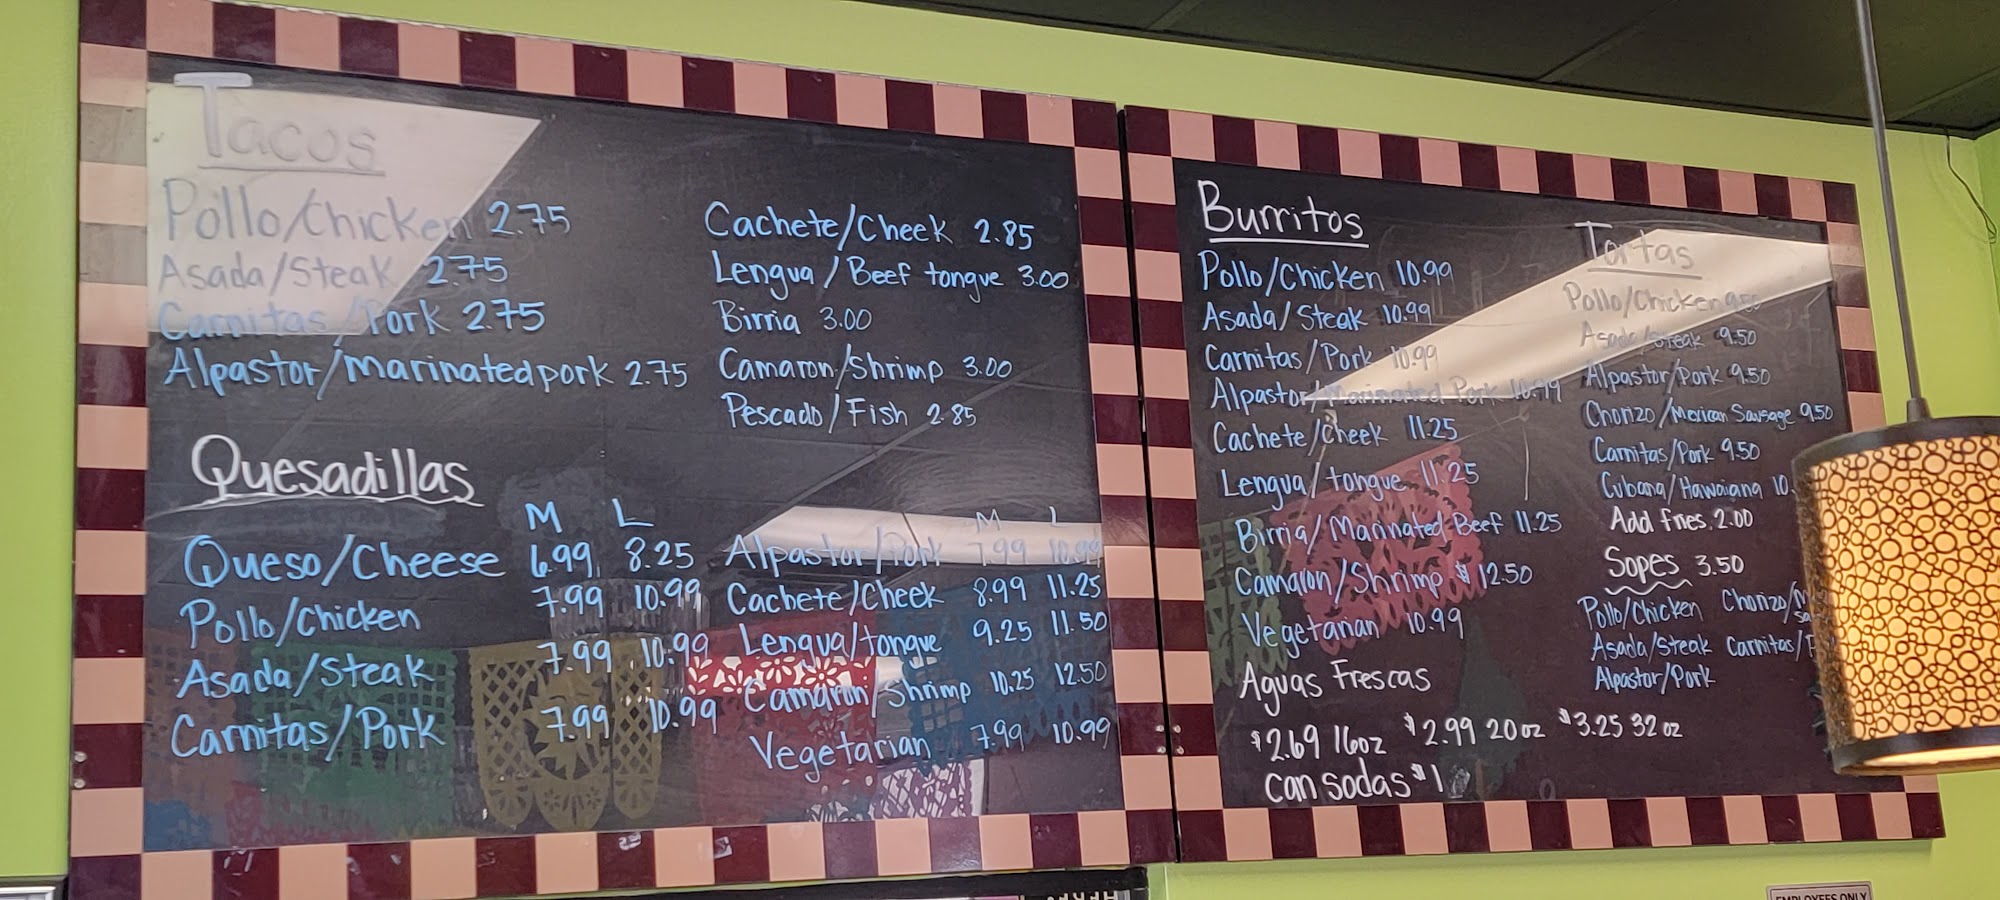 Tacos
Pollo/Chicken 2.75
Asada/Steak 2.75
Carnitas/Pork 2.75
Alpastor/Marinated pork 2.75
Cachete/Cheek 2.85
Lengua/Beef tongue 3.00
Birria 3.00
Camaron/Shrimp 3.00
Pescado/Fish 2.85
Quesadillas
M L
Queso/Cheese 6.99 8.25
Pollo/Chicken 7.99 10.99
Asada/Steak 7.99 10.99
Carnitas/Pork 7.99 10.99
M L
Alpastor/Pork 7.99 10.99
Cachete/Cheek 8.99 11.25
Lengua/tongue 9.25 11.50
Camaron/Shrimp 10.25 12.50
Vegetarian 7.99 10.99
Burritos
Pollo/Chicken 10.99
Asada/Steak 10.99
Carnitas/Pork 10.99
Alpastor/Marinated Pork 10.99
Cachete/Cheek 11.25
Lengua/tongue 11.25
Birria/Marinated Beef 11.25
Camaron/Shrimp $12.50
Vegetarian 10.99
Aguas Frescas
$2.69 16oz $2.99 20oz $3.25 32oz
can sodas $1
Tortas
Pollo/Chicken 9.50
Asada/Steak 9.50
Alpastor/Pork 9.50
Chorizo/Mexican Sausage 9.50
Carnitas/Pork 9.50
Cubana/Hawaiana 10.
Add fries 2.00
Sopes 3.50
Pollo/Chicken Chorizo/
Asada/Steak Carnitas/P
Alpastor/Pork
EMPLOYEES ONLY